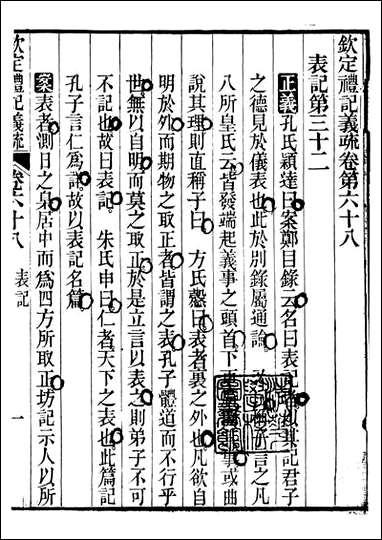 欽定禮記義疏卷第六十八
表記第三十二
正義孔氏穎達曰案鄭目錄云名曰表記者以其記君子
之德見於儀表也此於別錄屬通論 子言之凡
八所皇氏云皆發端起義事之頭首下 事或曲
說其理則直稱子曰 方氏慤曰表者裏之外也凡欲自
明於外而期物之取正者皆謂之表孔子體道而不行乎
世無以自明而莫之取正於是立言以表之則弟子不可
不記也故曰表記 朱氏申曰仁者天下之表也此篇記
孔子言仁為詳故以表記名篇
案表者測日之臬居中而為四方所取正坊記示人以所
欽定禮記義疏 卷六十八 表記 一